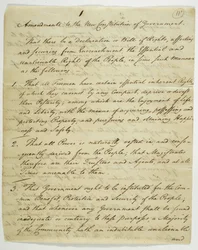 Amendments to the New Constitution of Government.
That there be a declaration or Bill of Rights, asserting
and securing from Encroachment the Essential and
unalienable Rights of the People, in some such Manner
as the following.
1. That all Freemen have certain essential inherent Rights
of which they cannot by any Compact, deprive or divest
their Posterity; among which are the Enjoyment of Life
and Liberty, with the means of acquiring, possessing and
protecting Property, and pursuing and obtaining Happi-
ness and Safety.
2. That all Power is naturally vested in, and conse-
quently derived from the People; that Magistrates
therefore are their Trustees and Agents, and at all
Times amenable to them.
3. That Government ought to be instituted for the Com-
mon Benefit, Protection and Security of the People,
and that whenever any Government shall be found
inadequate or contrary to these purposes, a Majority
of the Community hath an indubitable unalienable
and